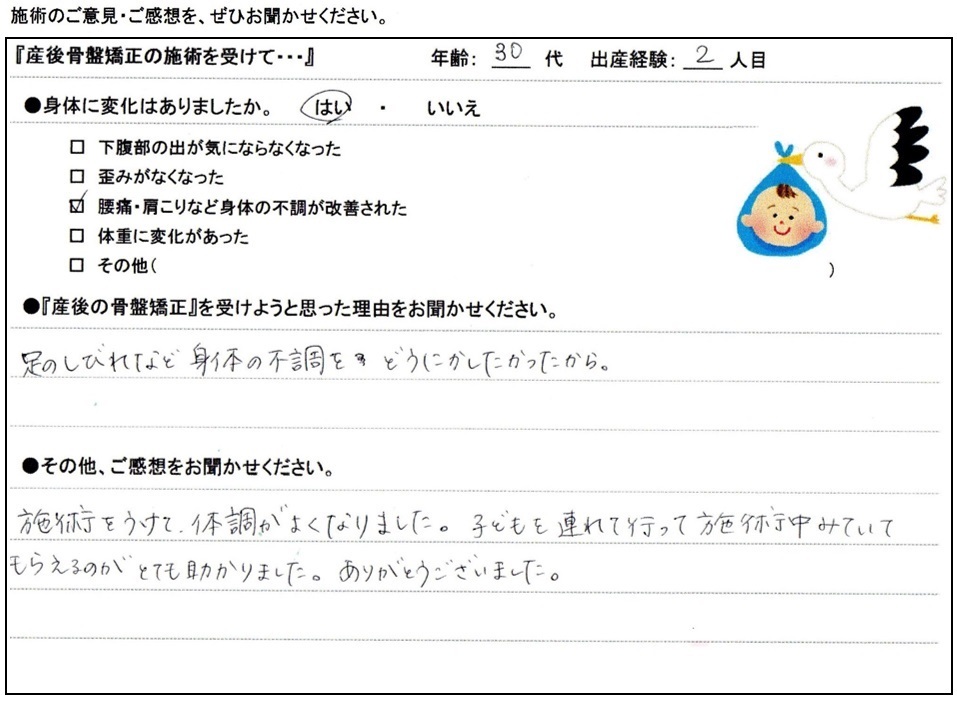 施術のご意見・ご感想を、ぜひお聞かせください。
『産後骨盤矯正の施術を受けて・・・』 年齢： 30 代 出産経験： 2 人目
●身体に変化はありましたか。 はい ・ いいえ
□ 下腹部の出が気にならなくなった
□ 歪みがなくなった
☑ 腰痛・肩こりなど身体の不調が改善された
□ 体重に変化があった
□ その他( )
●『産後の骨盤矯正』を受けようと思った理由をお聞かせください。
足のしびれなど身体の不調をどうにかしたかったから。
●その他、ご感想をお聞かせください。
施術をうけて、体調がよくなりました。子どもを連れて行って施術中みていて
もらえるのがとても助かりました。ありがとうございました。